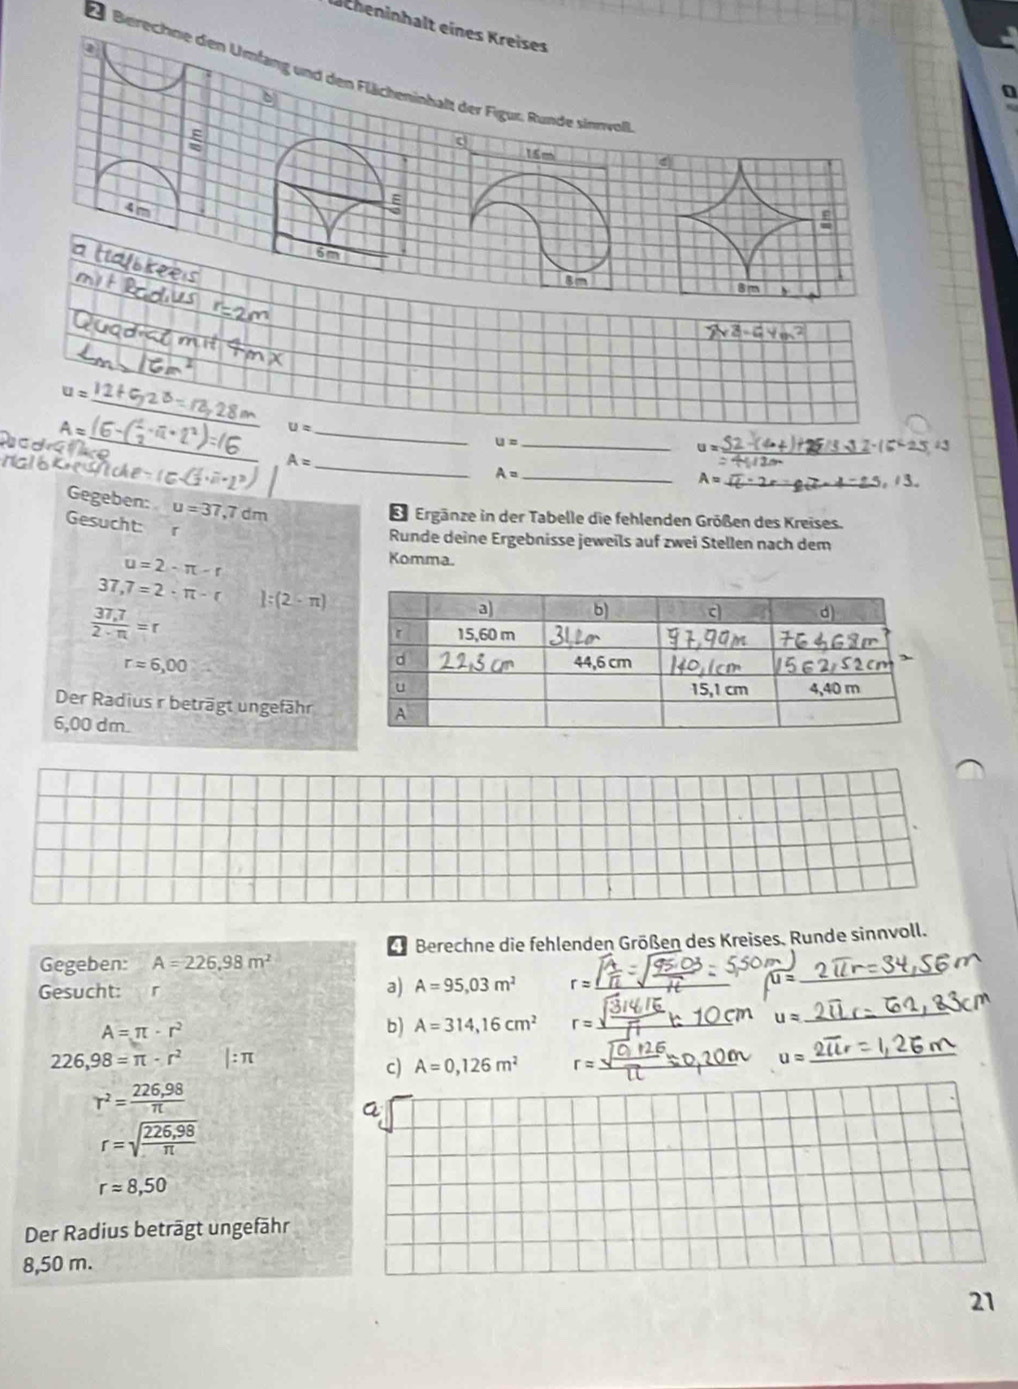 ächeninhalt eines Kreises
2 Berechne den Umfang und den Flächeninhalt der Figur. Runde sinnvoll.
a)
b)
c)
d)
8 m
4 m
6 m
6 m
16 m
8 m
8 m
8 m
a Halbkreeis
mit Radius r=2m
Quadrat mit 4m x
4m > 16m²
u = 12+6,28=18,28m
A = 16-(½·π·2²)=16
u =
A =
u =
A =
u =
A =
Gegeben: u = 37,7 dm
Gesucht: r
u = 2 · π · r
37,7 = 2 · π · r |:(2 · π)
37,7 / 2 · π = r
r ≈ 6,00
Der Radius r beträgt ungefähr
6,00 dm.
3 Ergänze in der Tabelle die fehlenden Größen des Kreises.
Runde deine Ergebnisse jeweils auf zwei Stellen nach dem
Komma.
a) b) c) d)
r 15,60 m 97,99m
d 22,3 cm 44,6 cm 140,1cm 1562,52cm²
u 15,1 cm 4,40 m
A
Gegeben: A = 226,98 m²
Gesucht: r
A = π · r²
226,98 = π · r² |:π
r² = 226,98 / π
r = √(226,98 / π)
r ≈ 8,50
Der Radius beträgt ungefähr
8,50 m.
4 Berechne die fehlenden Größen des Kreises. Runde sinnvoll.
a) A = 95,03 m² r ≈ √(A/π) = √(95,03/π) = 5,50m u ≈ 2πr=34,56m
b) A = 314,16 cm² r ≈ √(314,16/π) ≈ 10cm u ≈ 2πr= 62,83cm
c) A = 0,126 m² r ≈ √(0,126/π) ≈ 0,20m u ≈ 2πr = 1,26m
a
21